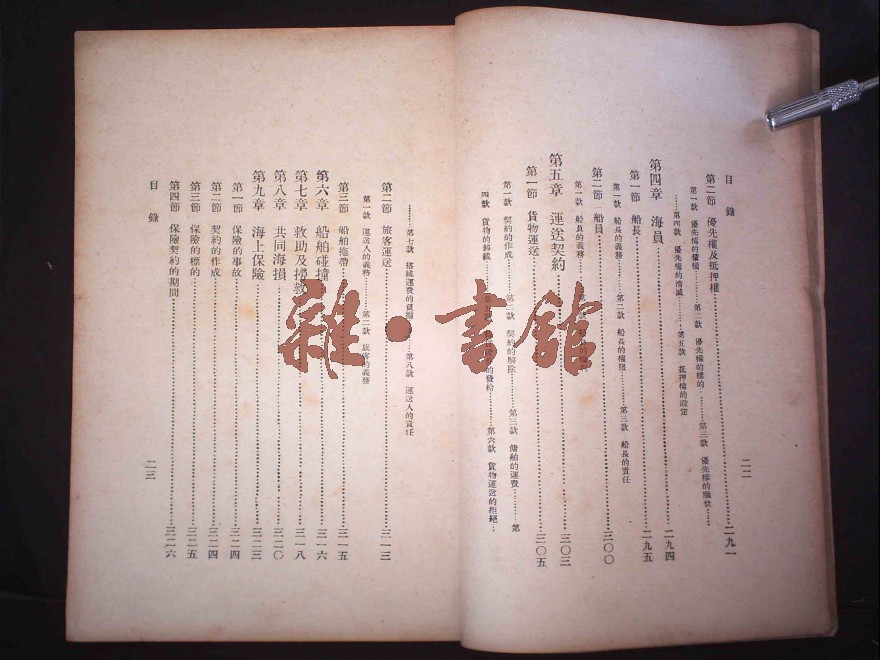 目錄
二二
第二節 優先權及抵押權……二九一
第一款 優先權的債權……第二款 優先權的標的……第三款 優先權的順位……
……第四款 優先權的消滅……第五款 抵押權的設定
第四章 海員……二九四
第一節 船長……二九五
第一款 船長的義務……第二款 船長的權限……第三款 船長的責任
第二節 船員……三〇〇
第一款 船員的義務……
第五章 運送契約……三〇三
第一節 貨物運送……三〇五
第一款 契約的作成……第二款 契約的解除……第三款 傭舶的運費……第
四款 貨物的卸載……的發給……第六款 貨物運送的拒絕…
……第七款 搭載運費的負擔……第八款 運送人的責任
第二節 旅客運送……三一三
第一款 運送人的義務……第二款 旅客的義務
第三節 船舶拖帶……三一五
第六章 船舶碰撞……三一六
第七章 救助及撈救……三一八
第八章 共同海損……三二〇
第九章 海上保險……三二三
第一節 保險的事故……三二四
第二節 契約的作成……三二四
第三節 保險的標的……三二五
第四節 保險契約的期間……三二六
目錄
二三
雜·書館